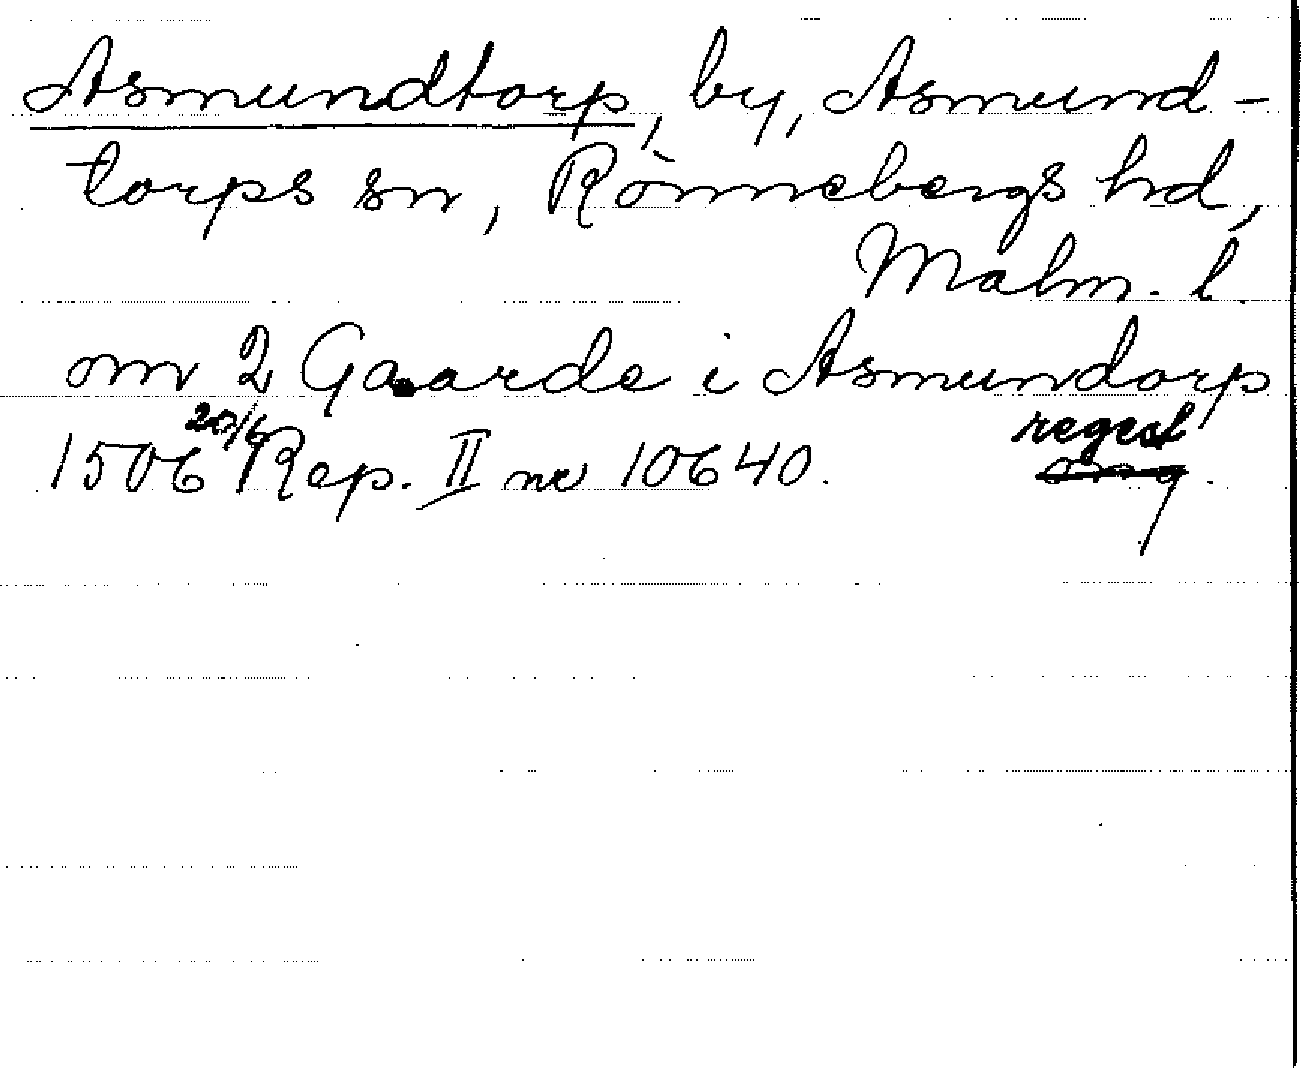 Asmundtorp, by, Asmund-
torps sn, Rönnebergs hd,
Malm. l.
om 2 Gaarde i Asmundorp
1506 20/6 Rep. II nr 10640. regest